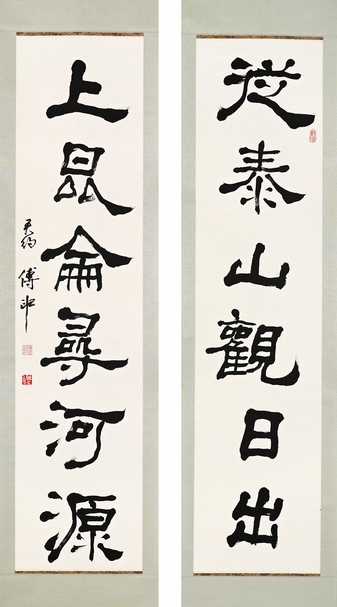 从泰山觀日出
上昆侖尋河源
君約 傅申